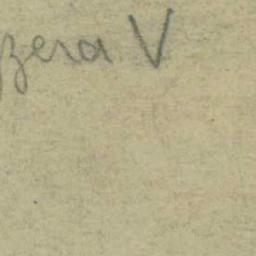 zzera V